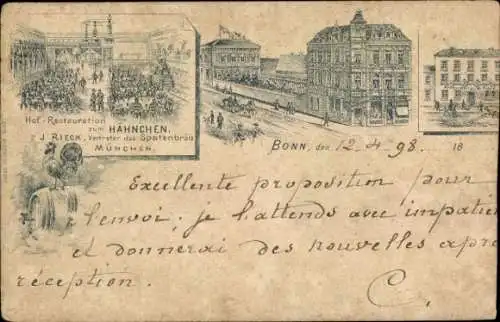 Hof-Restauration
zum HÄHNCHEN.
J. RIECK, Vertreter des Spatenbräu
MÜNCHEN.
BONN, den 12.4.98. 18
Excellente proposition pour
l'envoi; je l'attends avec impatie
et donnerai des nouvelles apre
réception.
C.